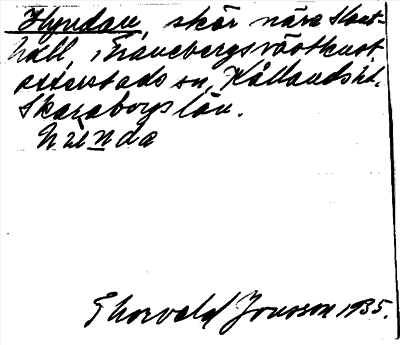 Hyndan, skär nära Stor-
häll, i Tranebergs västkust,
Otterstads sn, Kållands hd.
Skaraborgs län.
hünda
Thorvald Jonsson 1935.